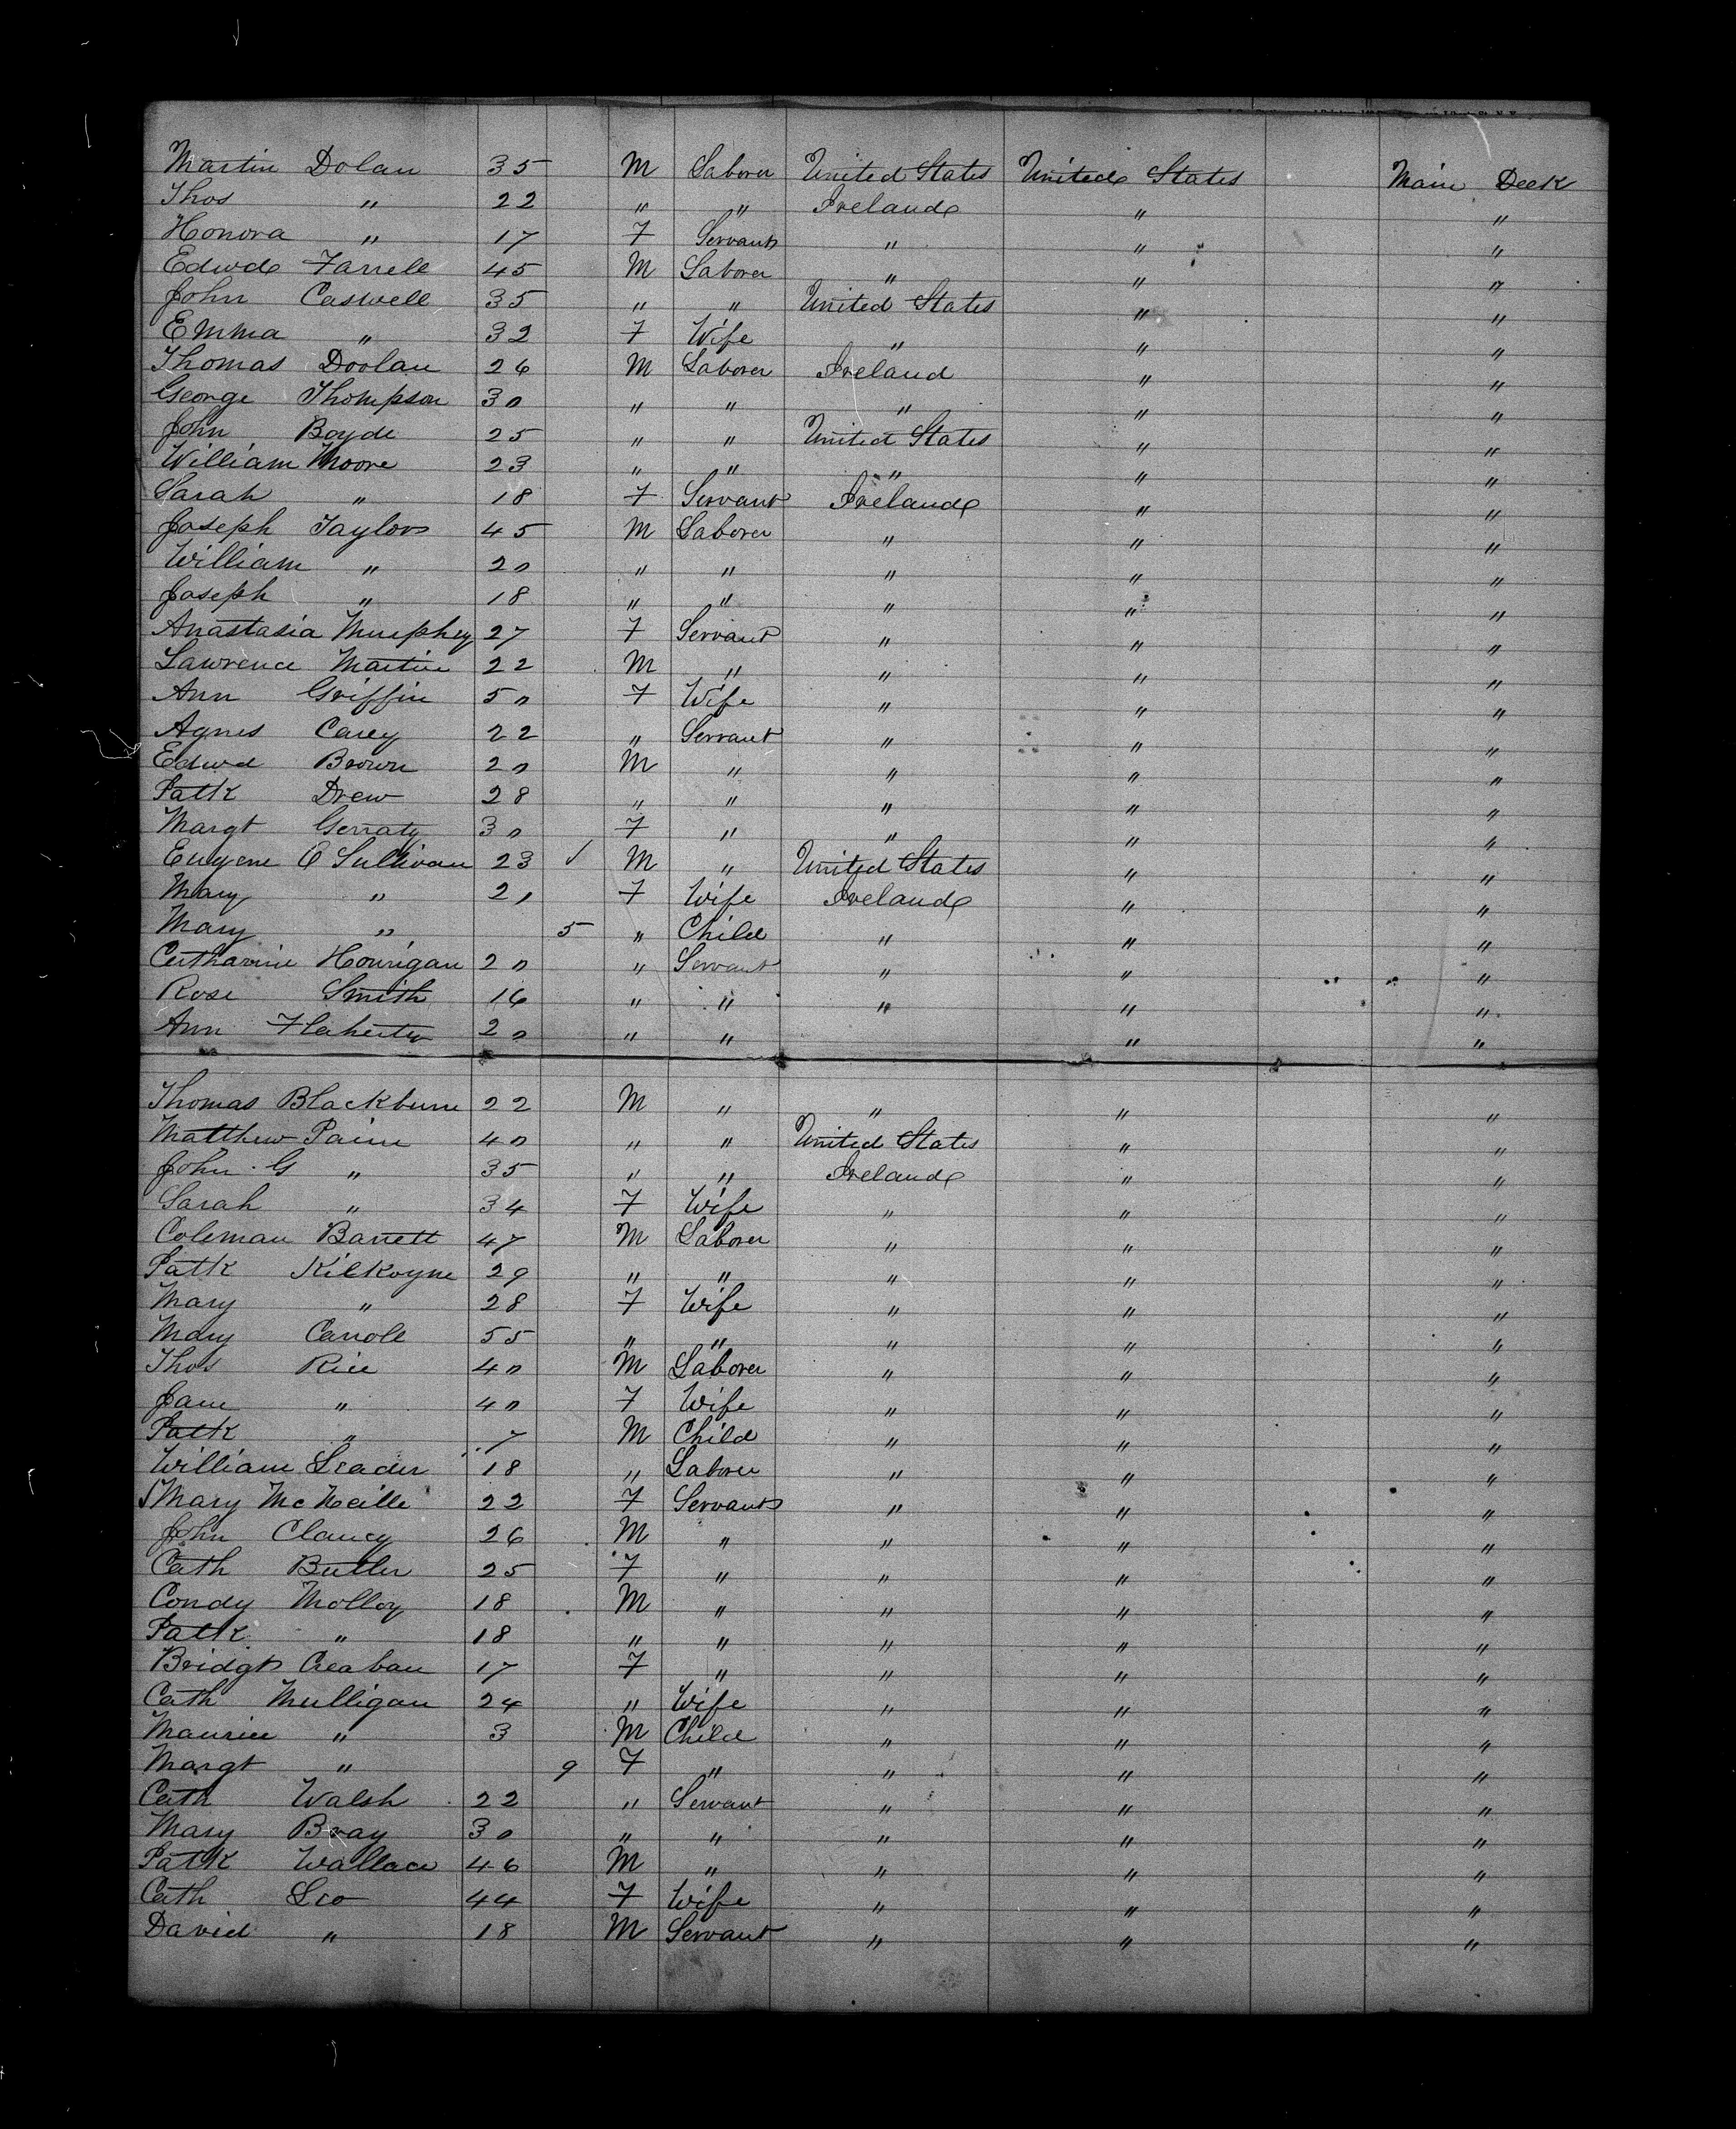 Martin Dolan 35 M Laborer United States United States Main Deck
Thos " 22 " " Ireland " "
Honora " 17 F Servant " " "
Edwd Farrell 45 M Laborer " " "
John Caswell 35 " " United States " "
Emma " 32 F Wife " " "
Thomas Doolan 26 M Laborer Ireland " "
George Thompson 30 " " " " "
John Boyde 25 " " United States " "
William Moore 23 " " " " "
Sarah " 18 F Servant Ireland " "
Joseph Taylor 45 M Laborer " " "
William " 20 " " " " "
Joseph " 18 " " " " "
Anastasia Murphy 27 F Servant " " "
Lawrence Martin 22 M " " " "
Ann Griffin 50 F Wife " " "
Agnes Carey 22 " Servant " " "
Edwd Brown 20 M " " " "
Patk Drew 28 " " " " "
Margt Gerraty 30 F " " " "
Eugene O Sullivan 23 ✓ M " United States " "
Mary " 21 F Wife Ireland " "
Mary " 5 " Child " " "
Catharine Hourigan 20 " Servant " " "
Rose Smith 16 " " " " "
Ann Flaherty 20 " " " "
Thomas Blackburn 22 M " " " "
Matthew Paine 40 " " United States " "
John G " 35 " " Ireland " "
Sarah " 34 F Wife " " "
Coleman Barrett 47 M Laborer " " "
Patk Kilkoyne 29 " " " " "
Mary " 28 F Wife " " "
Mary Carroll 55 " " " " "
Thos Rice 40 M Laborer " " "
Jane " 40 F Wife " " "
Patk " 7 M Child " " "
William Leader 18 " Laborer " " "
Mary McNeille 22 F Servant " " "
John Clancy 26 M " " " "
Cath Butler 25 F " " " "
Condy Molloy 18 M " " " "
Patk " 18 " " " " "
Bridgt Creaban 17 F " " " "
Cath Mulligan 24 " Wife " " "
Maurice " 3 M Child " " "
Margt " 9 F " " " "
Cath Walsh 22 " Servant " " "
Mary Bray 30 " " " " "
Patk Wallace 46 M " " " "
Cath Leo 44 F Wife " " "
David " 18 M Servant " " "